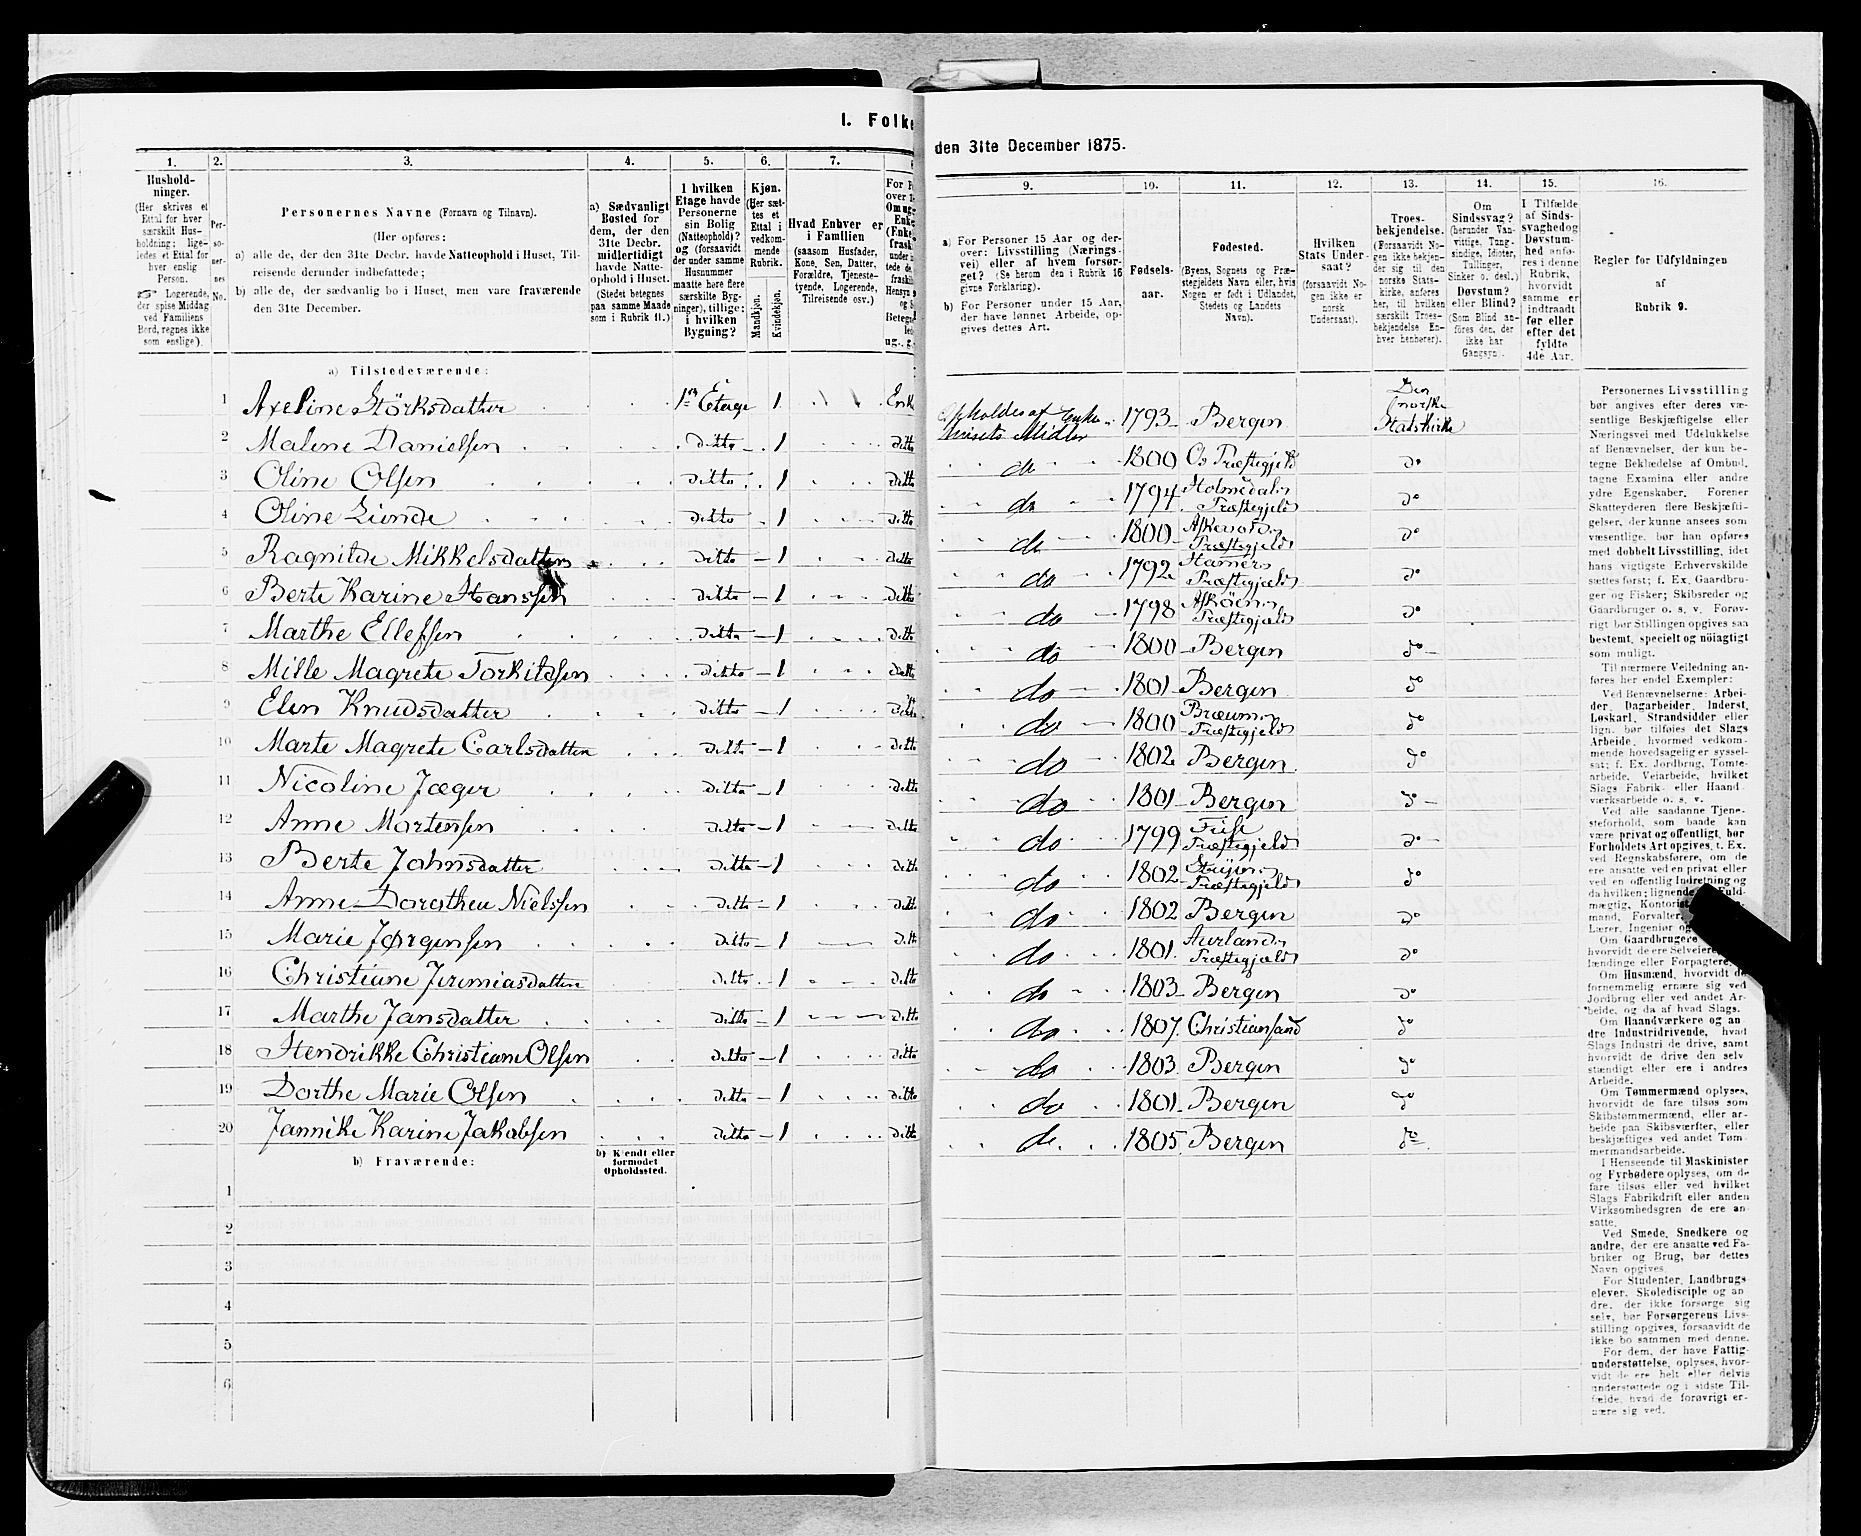 I. Folke
den 31te December 1875.
1.
2.
3.
4.
5.
6.
7.
9.
10.
11.
12.
13.
14.
15.
16.
Hushold-
ninger.
(Her skrives et
Ettal for hver
særskilt Hus-
holdning; lige-
ledes et Ettal for
hver enslig
Person.
Logerende,
der spise Middag
ved Familiens
Bord, regnes ikke
som enslige).
Per-
so-
ner-
nes
No.
Personernes Navne (Fornavn og Tilnavn).
(Her opføres:
a) alle de, der den 31te Decbr. havde Natteophold i Huset, Til-
reisende derunder indbefattede;
b) alle de, der sædvanlig bo i Huset, men vare fraværende
den 31te December.
a) Sædvanligt
Bosted for
dem, der den
31te Decbr.
midlertidigt
havde Natte-
ophold i Huset.
(Stedet betegnes
paa samme Maade
som i Rubrik 11.)
I hvilken
Etage havde
Personerne
sin Bolig
(Natteophold)?
og (forsaavidt
der under samme
Husnummer
maatte høre flere
særskilte Byg-
ninger), tillige:
i hvilken
Bygning?
Kjøn.
(Her sæt-
tes et
Ettal i
vedkom-
mende
Rubrik.
Mandkjøn.
Kvindekjøn.
Hvad Enhver er
i Familien
(saasom Husfader,
Kone, Søn, Datter,
Forældre, Tjeneste-
tyende, Logerende,
Tilreisende osv.)
a) For Personer 15 Aar og der-
over: Livsstilling (Nærings-
vei) eller af hvem forsør-
get? (Se herom den i Rubrik 16
givne Forklaring).
b) For Personer under 15 Aar,
der have lønnet Arbeide, op-
gives dettes Art.
Fødsels-
aar.
Fødested.
(Byens, Sognets og Præ-
stegjeldets Navn eller, hvis
Nogen er født i Udlandet,
Stedets og Landets
Navn).
Hvilken
Stats Under-
saat?
(forsaavidt No-
gen ikke er
norsk
Undersaat).
Troes-
bekjendelse.
(Forsaavidt No-
gen ikke bekjen-
der sig til den
norske Stats-
kirke, anføres
her, til hvilken
særskilt Troes-
bekjendelse En-
hver henhører).
Om
Sindssvag?
(herunder Van-
vittige, Tung-
sindige, Idioter,
Tullinger,
Sinker o. desl.)
Døvstum?
eller Blind?
(Som Blind an-
føres den, der
ikke har
Gangsyn).
I Tilfælde
af Sinds-
svaghed og
Døvstum-
hed anfø-
res i denne
Rubrik,
hvorvidt
samme er
indtraadt
før eller
efter det
fyldte
4de Aar.
Regler for Udfyldningen
af
Rubrik 9.
a) Tilstedeværende:
1 Axeline Störksdatter 1ste Etage 1 Enk Opholdes af Enke-husets Midler 1793 Bergen Den norske Statskirke
2 Malene Danielsen ditto 1 ditto do 1800 Os Præstegjeld do
3 Oline Olsen ditto 1 ditto do 1794 Holmedals Præstegjeld do
4 Oline Lunde ditto 1 ditto do 1800 Askevold Præstegjeld do
5 Ragnilde Mikkelsdatter ditto 1 ditto do 1792 Hamers Præstegjeld do
6 Berte Karine Hanssen ditto 1 ditto do 1798 Askøen Præstegjeld do
7 Marthe Ellefsen ditto 1 ditto do 1800 Bergen do
8 Mille Magrete Torkildsen ditto 1 ditto do 1801 Bergen do
9 Elen Knudsdatter ditto 1 ditto do 1800 Præstegjeld do
10 Marte Magrete Carlsdatter ditto 1 ditto do 1802 Bergen do
11 Nicoline Jæger ditto 1 ditto do 1801 Bergen do
12 Anne Martensen ditto 1 ditto do 1799 Præstegjeld do
13 Berte Johnsdatter ditto 1 ditto do 1802 Præstegjeld do
14 Anne Dorothea Nielssen ditto 1 ditto do 1802 Bergen do
15 Marie Jørgensen ditto 1 ditto do 1801 Aurland Præstegjeld do
16 Christiane Jeremiasdatter ditto 1 ditto do 1803 Bergen do
17 Marthe Jansdatter ditto 1 ditto do 1807 Christiansand do
18 Hendrikke Christiane Olsen ditto 1 ditto do 1803 Bergen do
19 Dorthe Marie Olsen ditto 1 ditto do 1801 Bergen do
20 Jannike Karine Jakobsen ditto 1 ditto do 1805 Bergen do
b) Fraværende:
b) Kjendt eller
formodet
Opholdssted.
1
2
3
4
5
6
Personernes Livsstilling
bør angives efter deres væ-
sentlige Beskjæftigelse eller
Næringsvei med Udelukkelse
af Benævnelser, der kun be-
tegne Beklædelse af Ombud,
tagne Examina eller andre
ydre Egenskaber. Forener
Skatteyderen flere Beskjæfti-
gelser, der kunne ansees som
væsentlige, bør han opføres
med dobbelt Livsstilling, idet
hans vigtigste Erhvervskilde
sættes først; f. Ex. Gaardbru-
ger og Fisker; Skibsreder og
Gaardbruger o. s. v. Forøv-
rigt bør Stillingen opgives saa
bestemt, specielt og nöiagtigt
som muligt.
Til nærmere Veiledning an-
føres her endel Exempler:
Ved Benævnelserne: Arbei-
der, Dagarbeider, Inderst,
Løskarl, Strandsidder eller
lign. bør tilføies det Slags
Arbeide, hvormed vedkom-
mende hovedsagelig er syssel-
sat; f. Ex. Jordbrug, Tomte-
arbeide, Veiarbeide, hvilket
Slags Fabrik- eller Haand-
værksarbeide o. s. v.
Ved alle saadanne Tjene-
steforhold, som baade kan
være privat og offentligt, bør
Forholdets Art opgives, t. Ex.
ved Regnskabsførere, om de
ere ansatte ved en privat eller
ved en offentlig Indretning og
da hvilken; lignende Fuld-
mægtig, Kontorist
mand, Forvalter,
Lærer, Ingeniør og
Om Gaardbrugere
hvorvidt de ere Selveiere,
lændinge eller Forpagtere.
Om Husmænd, hvorvidt de
fornemmelig ernære sig ved
Jordbrug eller ved andet Ar-
beide, og da af hvad Slags.
Om Haandværkere og an-
dre Industridrivende, hvad
Slags Industri de drive, samt
hvorvidt de drive den selv-
stændigt eller ere i andres
Arbeide.
Om Tømmermænd oplyses,
hvorvidt de fare tilsøs som
Skibstømmermænd, eller ar-
beide paa Skibsværfter, eller
beskjæftiges ved andet Tøm-
mermandsarbeide.
I Henseende til Maskinister
og Fyrbødere oplyses, om de
fare tilsøs eller ved hvilket
Slags Fabrikdrift eller anden
Virksomhedsgren de ere an-
satte.
Ved Smede, Snedkere og
andre, der ere ansatte ved Fa-
briker og Brug, bør dettes
Navn opgives.
For Studenter, Landbrugs-
elever, Skoledisciple og an-
dre, der ikke forsørge sig
selv, bør Forsørgerens Livs-
stilling opgives, forsaavidt de
ikke bo sammen med denne.
For dem, der have Fattig-
understøttelse, oplyses, hvor-
vidt de ere helt eller delvis
understøttede og i sidste Til-
fælde, hvad de forøvrigt er-
nære sig ved.